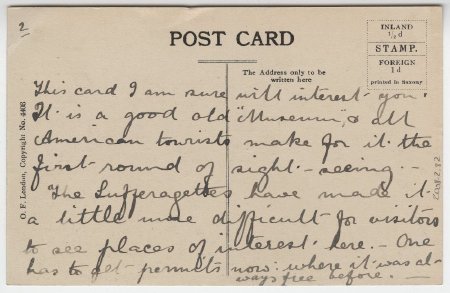 2
POST CARD
INLAND
½d
STAMP.
FOREIGN
1d
printed in Saxony
The Address only to be
written here
This card I am sure will interest you.
It is a good old "Museum", & all
American tourists make for it the
first round of sight-seeing.
The Suffragettes have made it
a little more difficult for visitors
to see places of interest here. One
has to get permits now: where it was al-
ways free before.
O. F. London, Copyright No.